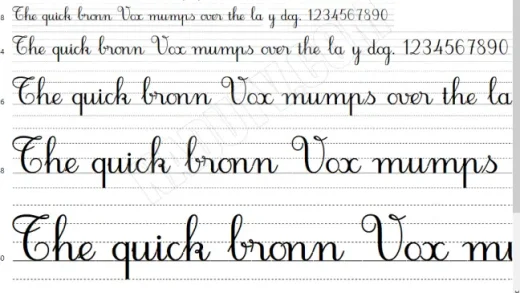 8 The quick bronn Vox mumps over the la y dog. 1234567890
4 The quick bronn Vox mumps over the la y dog. 1234567890
6 The quick bronn Vox mumps over the la
8 The quick bronn Vox mumps
0 The quick bronn Vox mu